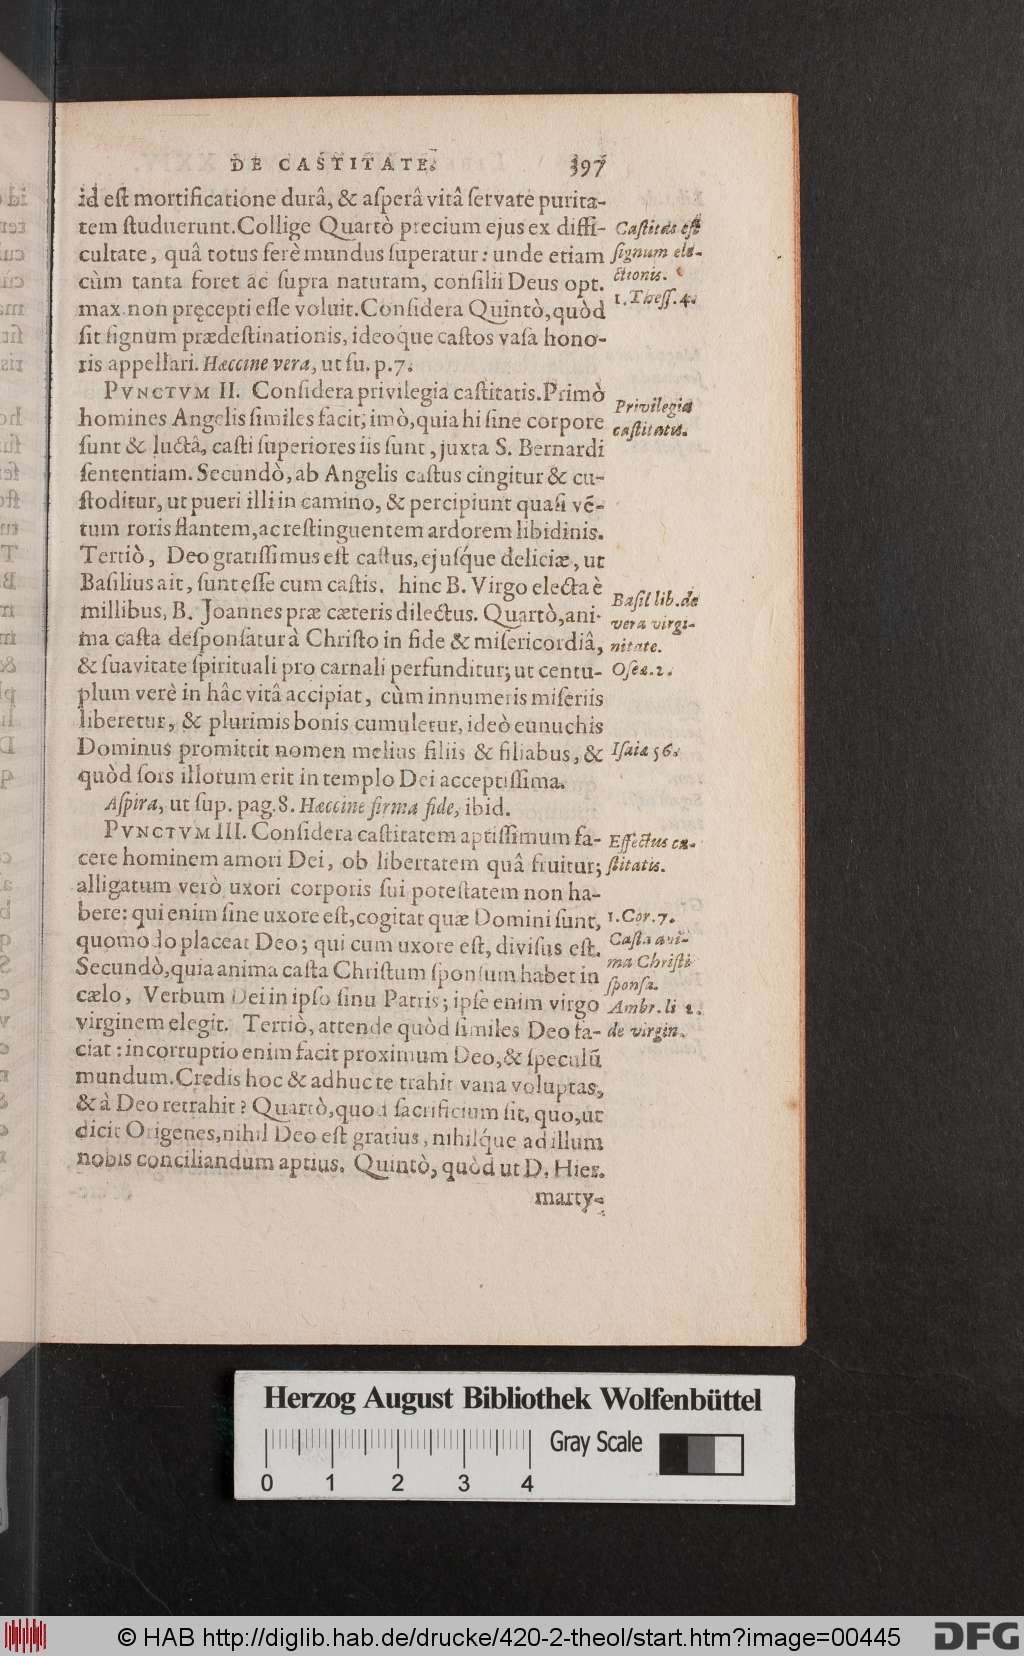 DE CASTITATE. 397
id eſt mortificatione durâ, & aſperâ vitâ ſervare purita-
tem ſtuduerunt. Collige Quartò precium ejus ex diffi-
cultate, quâ totus ferè mundus ſuperatur: unde etiam
cùm tanta foret ac ſupra naturam, conſilii Deus opt.
max. non pręcepti eſſe voluit. Conſidera Quintò, quòd
ſit ſignum prædeſtinationis, ideoque caſtos vaſa hono-
ris appellari. Hæccine vera, ut ſu. p. 7.
Caſtitas eſt
ſignum ele-
ctionis.
1. Theſſ. 4.
PVNCTVM II. Conſidera privilegia caſtitatis. Primò
homines Angelis ſimiles facit; imò, quia hi ſine corpore
ſunt & luctâ, caſti ſuperiores iis ſunt, juxta S. Bernardi
ſententiam. Secundò, ab Angelis caſtus cingitur & cu-
ſtoditur, ut pueri illi in camino, & percipiunt quaſi vē-
tum roris flantem, ac reſtinguentem ardorem libidinis.
Tertiò, Deo gratiſſimus eſt caſtus, ejuſq́ue deliciæ, ut
Baſilius ait, ſunt eſſe cum caſtis. hinc B. Virgo electa è
millibus, B. Joannes præ cæteris dilectus. Quartò, ani-
ma caſta deſponſatur à Chriſto in fide & miſericordiâ,
& ſuavitate ſpirituali pro carnali perfunditur; ut centu-
plum verè in hâc vitâ accipiat, cùm innumeris miſeriis
liberetur, & plurimis bonis cumuletur, ideò eunuchis
Dominus promittit nomen melius filiis & filiabus, &
quòd ſors illorum erit in templo Dei acceptiſſima.
Privilegia
caſtitatis.
Baſil lib. de
vera virgi-
nitate.
Oſea. 2.
Iſaia 56.
Aſpira, ut ſup. pag. 8. Hæccine firma fide, ibid.
PVNCTVM III. Conſidera caſtitatem aptiſſimum fa-
cere hominem amori Dei, ob libertatem quâ fruitur;
alligatum verò uxori corporis ſui poteſtatem non ha-
bere: qui enim ſine uxore eſt, cogitat quæ Domini ſunt,
quomodo placeat Deo; qui cum uxore eſt, diviſus eſt.
Secundò, quia anima caſta Chriſtum ſponſum habet in
cælo, Verbum Dei in ipſo ſinu Patris; ipſe enim virgo
virginem elegit. Tertiò, attende quòd ſimiles Deo fa-
ciat: incorruptio enim facit proximum Deo, & ſpeculū
mundum. Credis hoc & adhuc te trahit vana voluptas,
& à Deo retrahit? Quartò, quod ſacrificium ſit, quo, ut
dicit Origenes, nihil Deo eſt gratius, nihilq́ue ad illum
nobis conciliandum aptius. Quintò, quòd ut D. Hier.
marty-
Effectus ca-
ſtitatis.
1. Cor. 7.
Caſta ani-
ma Chriſti
ſponſa.
Ambr. li 1.
de virgin.
Herzog August Bibliothek Wolfenbüttel
Gray Scale
0 1 2 3 4
© HAB http://diglib.hab.de/drucke/420-2-theol/start.htm?image=00445
DFG